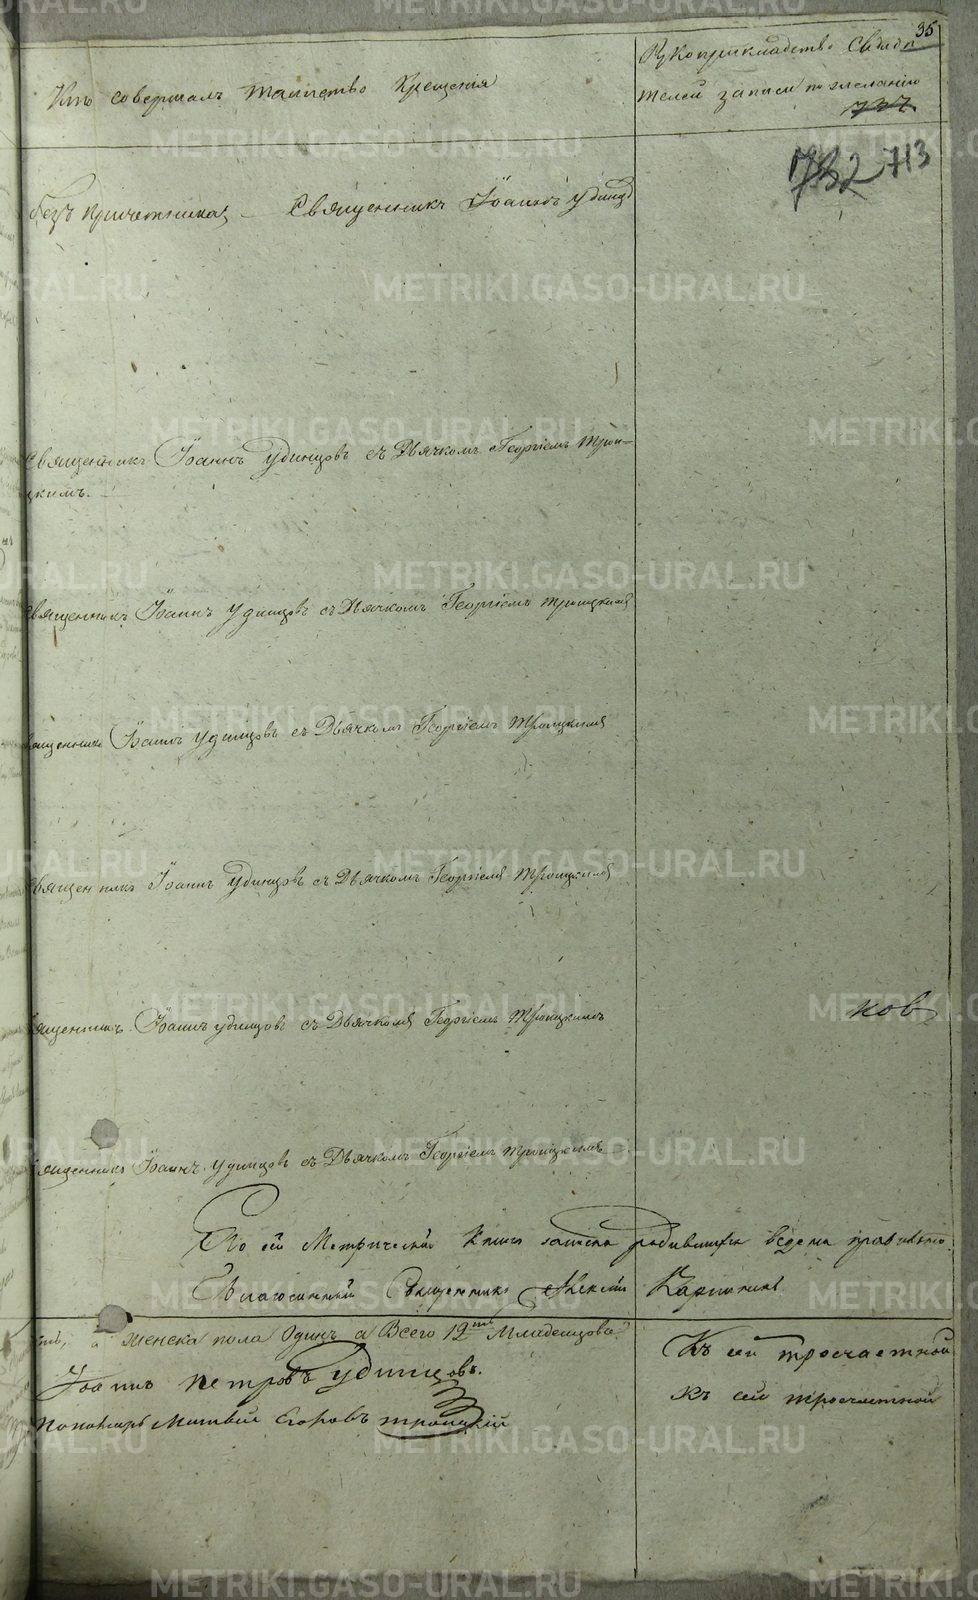 95
Кто совершалъ таинство Крещенія
Рукоприкладство Свидѣ
телей записи по желанію
737
732 713
безъ причетника, Священникъ Іоаннъ Удинц
Священникъ Іоаннъ Удинцовъ съ Дьячкомъ Георгіемъ Трои-
цкимъ.
Священникъ Іоаннъ Удинцовъ съ Дьячкомъ Георгіемъ Троицкимъ
вященникъ Іоаннъ Удинцовъ съ Дьячкомъ Георгіемъ Троицкимъ
Священникъ Іоаннъ Удинцовъ съ Дьячкомъ Георгіемъ Троицкимъ
вященникъ Іоаннъ Удинцовъ съ Дьячкомъ Георгіемъ Троицкимъ
ков
Священникъ Іоаннъ Удинцовъ съ Дьячкомъ Георгіемъ Троицкимъ
По сей Метрической Книги записка родившихся ведена правильно.
Благочинный Священникъ Алексій
а женска пола Одинъ а Всего 12ть Младенцовъ
Къ сей тросчастной
Іоаннъ Петровъ Удинцовъ.
къ сей тросчастной
Пономарь Матвій Егоровъ Троицкій
METRIKI.GASO-URAL.RU